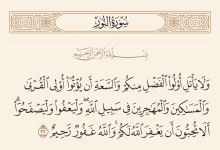 سُورَةُ النُّورِ
بِسْمِ اللَّهِ الرَّحْمَٰنِ الرَّحِيمِ
وَلَا يَأْتَلِ أُو۟لُوا۟ ٱلْفَضْلِ مِنكُمْ وَٱلسَّعَةِ أَن يُؤْتُوٓا۟ أُو۟لِى ٱلْقُرْبَىٰ
وَٱلْمَسَٰكِينَ وَٱلْمُهَٰجِرِينَ فِى سَبِيلِ ٱللَّهِ ۖ وَلْيَعْفُوا۟ وَلْيَصْفَحُوٓا۟ ۗ
أَلَا تُحِبُّونَ أَن يَغْفِرَ ٱللَّهُ لَكُمْ ۗ وَٱللَّهُ غَفُورٌ رَّحِيمٌ ٢٢